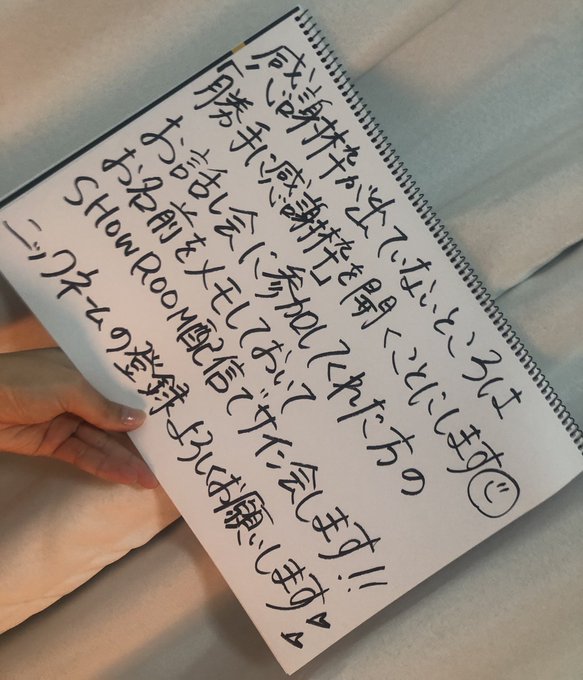 感謝枠が出ていないところは
「勝手に感謝枠」を開くことにします
お話し会に参加してくれた方の
お名前をメモしておいて
SHOWROOM配信でサイン会します!!
ニックネームの登録よろしくお願いします